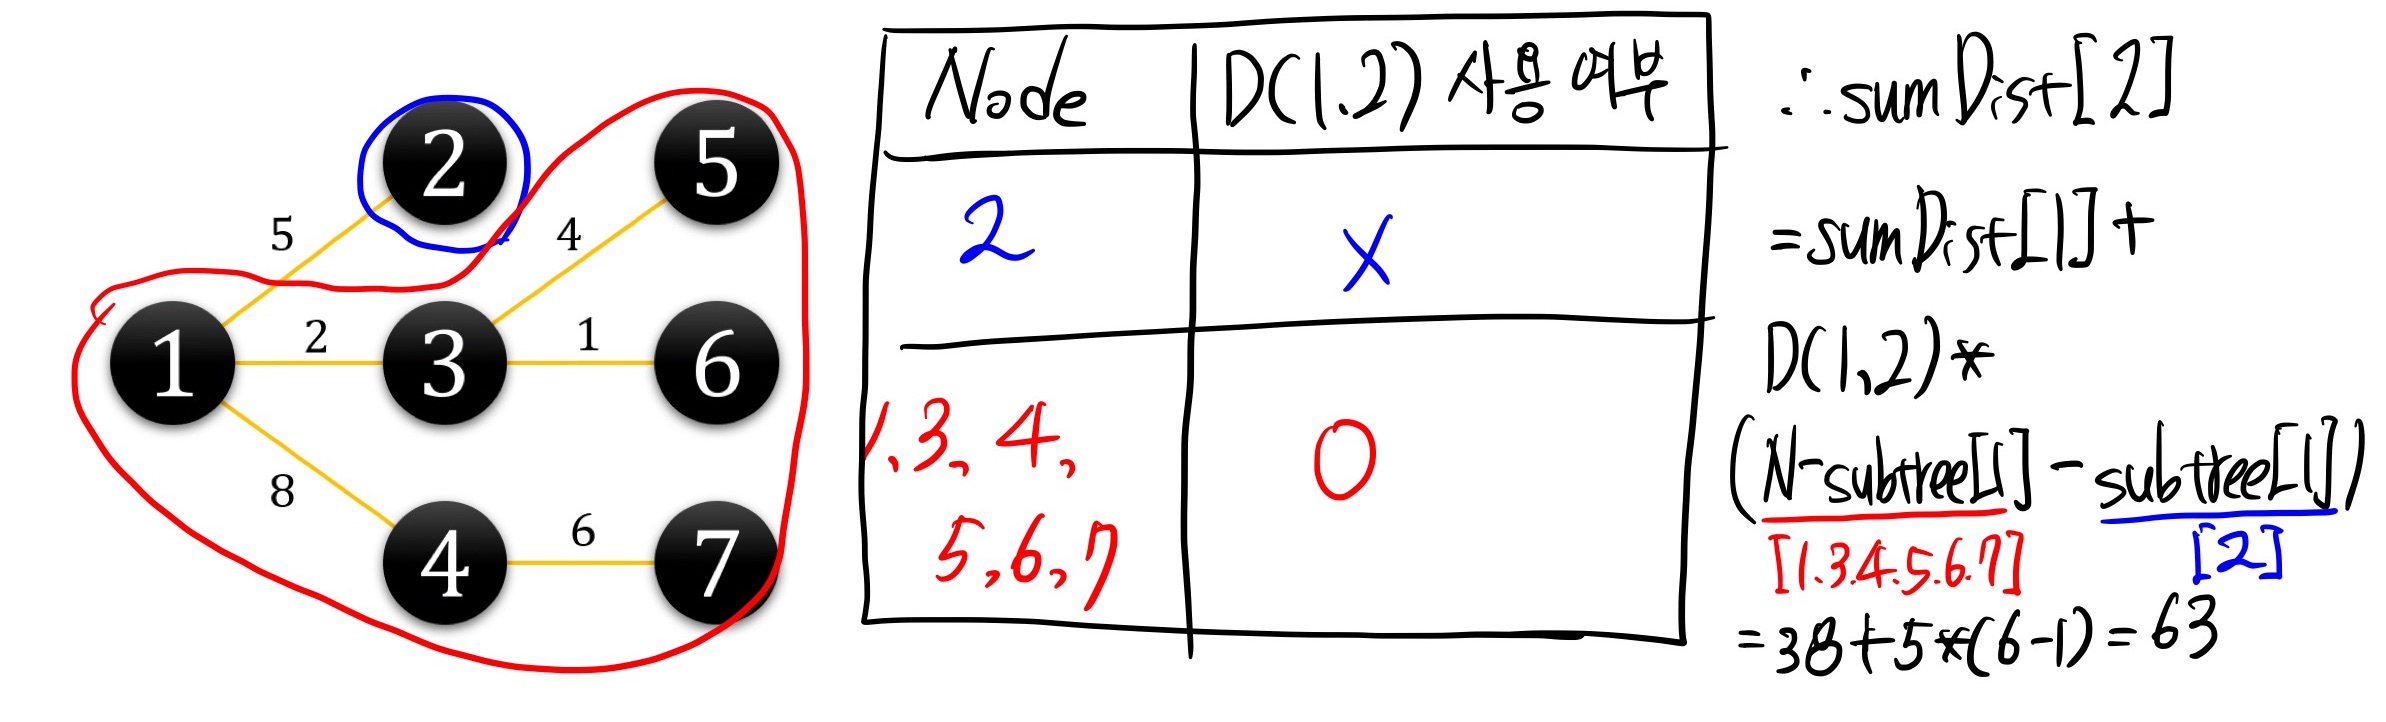 2
5
5
4
1
2
3
1
6
8
4
6
7
Node D(1,2) 사용 여부
2 X
1, 3, 4,
5, 6, 7
O
∴ sumDist[2]
=sumDist[1]+
D(1,2)*
(N-subtree[1] - subtree[1])
[1.3.4.5.6.7] [2]
=38+5*(6-1)=63